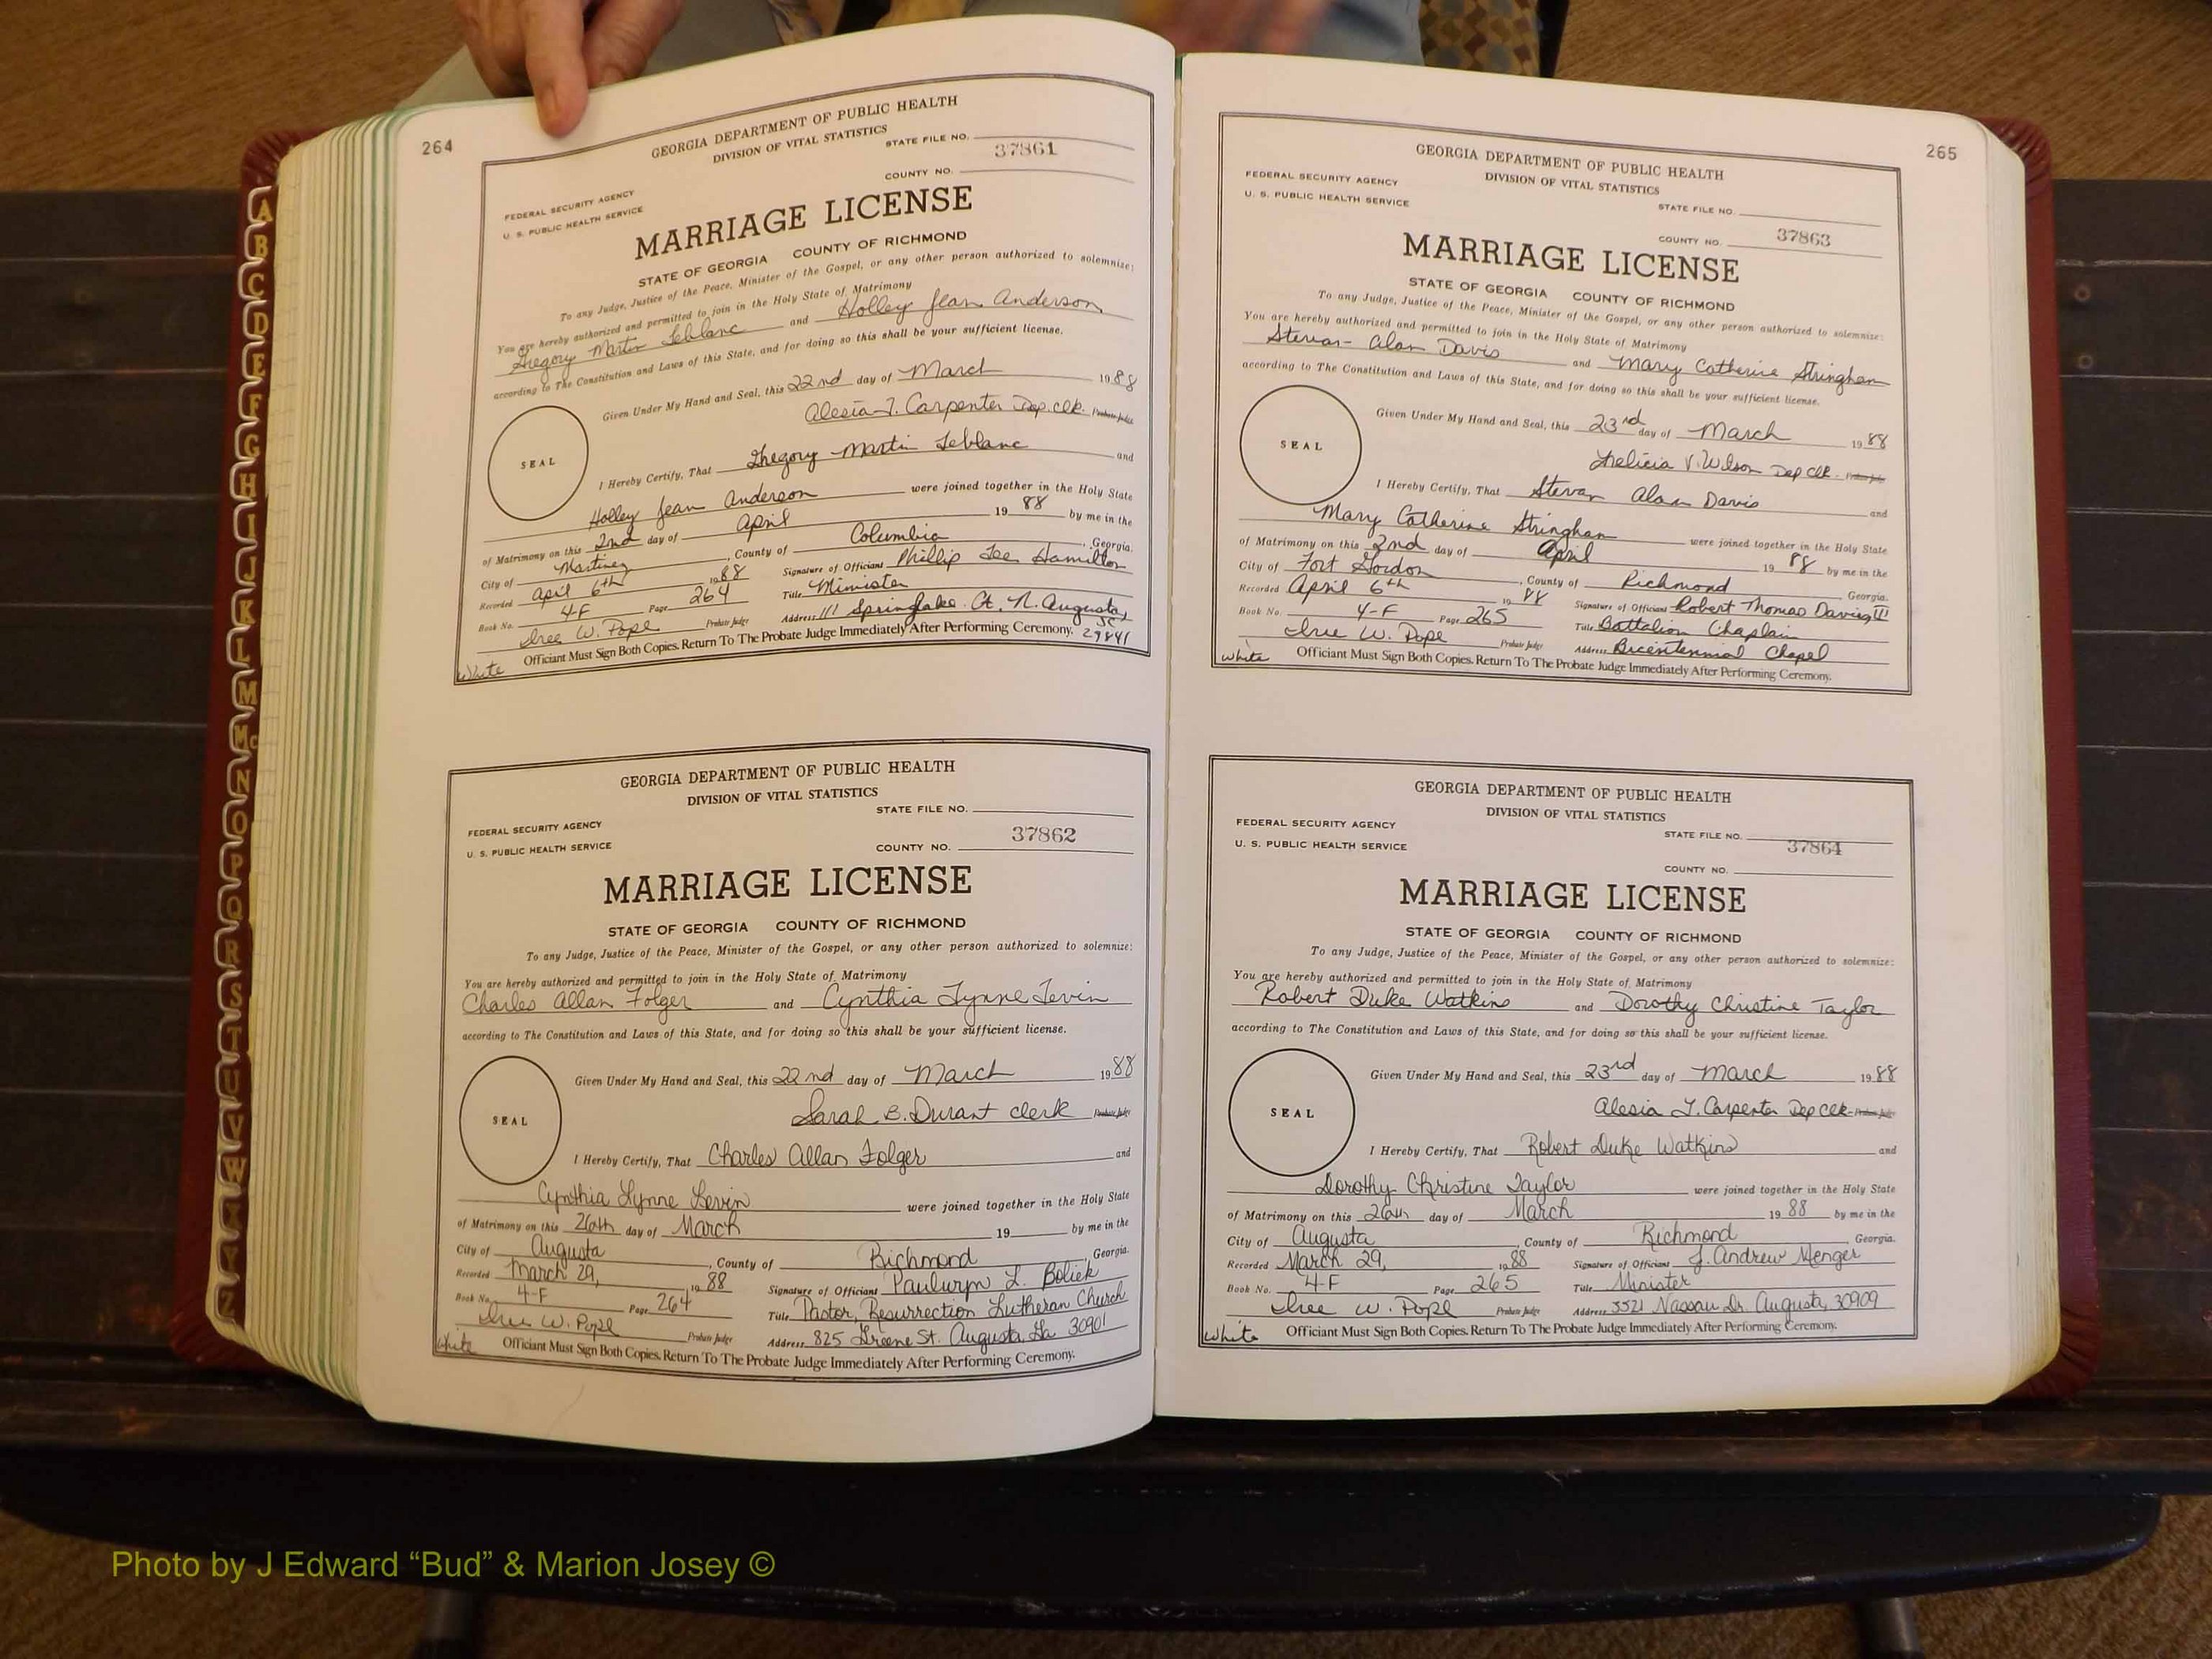 264
GEORGIA DEPARTMENT OF PUBLIC HEALTH
DIVISION OF VITAL STATISTICS
STATE FILE NO.
37861
COUNTY NO.
FEDERAL SECURITY AGENCY
U. S. PUBLIC HEALTH SERVICE
MARRIAGE LICENSE
STATE OF GEORGIA COUNTY OF RICHMOND
To any Judge, Justice of the Peace, Minister of the Gospel, or any other person authorized to solemnize:
You are hereby authorized and permitted to join in the Holy State of Matrimony
Gregory Martin Leblanc and Holley Jean Anderson
according to The Constitution and Laws of this State, and for doing so this shall be your sufficient license.
Given Under My Hand and Seal, this 22nd day of March 1988
Alesia T. Carpenter Dep. Clk. Probate Judge
SEAL
I Hereby Certify, That Gregory Martin Leblanc and
Holley Jean Anderson were joined together in the Holy State
of Matrimony on this 2nd day of April 19 88 by me in the
City of Martinez, County of Columbia, Georgia.
Recorded April 6th 1988 Signature of Officiant Phillip Lee Hamilton
Book No. 4-F Page 264 Title Minister
Iree W. Pope Probate Judge Address 111 Springlake Ct. N. Augusta, SC 29841
White Officiant Must Sign Both Copies. Return To The Probate Judge Immediately After Performing Ceremony.
GEORGIA DEPARTMENT OF PUBLIC HEALTH
DIVISION OF VITAL STATISTICS
STATE FILE NO.
FEDERAL SECURITY AGENCY
37862
U. S. PUBLIC HEALTH SERVICE COUNTY NO.
MARRIAGE LICENSE
STATE OF GEORGIA COUNTY OF RICHMOND
To any Judge, Justice of the Peace, Minister of the Gospel, or any other person authorized to solemnize:
You are hereby authorized and permitted to join in the Holy State of Matrimony
Charles Allan Folger and Cynthia Lynne Levin
according to The Constitution and Laws of this State, and for doing so this shall be your sufficient license.
Given Under My Hand and Seal, this 22nd day of March 1988
Sarah E. Durant Clerk Probate Judge
SEAL
I Hereby Certify, That Charles Allan Folger and
Cynthia Lynne Levin were joined together in the Holy State
of Matrimony on this 26th day of March 19 by me in the
City of Augusta, County of Richmond, Georgia.
Recorded March 29, 1988 Signature of Officiant Paulwyn L. Boliek
Book No. 4-F Page 264 Title Pastor, Resurrection Lutheran Church
Iree W. Pope Probate Judge Address 825 Greene St. Augusta, Ga 30901
White Officiant Must Sign Both Copies. Return To The Probate Judge Immediately After Performing Ceremony.
265
GEORGIA DEPARTMENT OF PUBLIC HEALTH
FEDERAL SECURITY AGENCY DIVISION OF VITAL STATISTICS
U. S. PUBLIC HEALTH SERVICE STATE FILE NO.
37863
COUNTY NO.
MARRIAGE LICENSE
STATE OF GEORGIA COUNTY OF RICHMOND
To any Judge, Justice of the Peace, Minister of the Gospel, or any other person authorized to solemnize:
You are hereby authorized and permitted to join in the Holy State of Matrimony
Stevan Alan Davis and Mary Catherine Stringham
according to The Constitution and Laws of this State, and for doing so this shall be your sufficient license.
Given Under My Hand and Seal, this 23rd day of March 1988
V. Wilson Dep Clk. Probate Judge
SEAL
I Hereby Certify, That Stevan Alan Davis and
Mary Catherine Stringham were joined together in the Holy State
of Matrimony on this 2nd day of April 19 88 by me in the
City of Fort Gordon, County of Richmond Georgia.
Recorded April 6th 19 88 Signature of Officiant Robert Thomas Davies III
Book No. 4-F Page 265 Title Battalion Chaplain
Iree W. Pope Probate Judge Address Bicentennial Chapel
White Officiant Must Sign Both Copies. Return To The Probate Judge Immediately After Performing Ceremony.
GEORGIA DEPARTMENT OF PUBLIC HEALTH
DIVISION OF VITAL STATISTICS
FEDERAL SECURITY AGENCY
STATE FILE NO.
U. S. PUBLIC HEALTH SERVICE
37864
COUNTY NO.
MARRIAGE LICENSE
STATE OF GEORGIA COUNTY OF RICHMOND
To any Judge, Justice of the Peace, Minister of the Gospel, or any other person authorized to solemnize:
You are hereby authorized and permitted to join in the Holy State of Matrimony
Robert Duke Watkins and Dorothy Christine Taylor
according to The Constitution and Laws of this State, and for doing so this shall be your sufficient license.
Given Under My Hand and Seal, this 23rd day of March 1988
Alesia T. Carpenter Dep Clk Probate Judge
SEAL
I Hereby Certify, That Robert Duke Watkins and
Dorothy Christine Taylor were joined together in the Holy State
of Matrimony on this 26th day of March 19 88 by me in the
City of Augusta, County of Richmond Georgia.
Recorded March 29, 1988 Signature of Officiant J. Andrew Menger
Book No. 4-F Page 265 Title Minister
Iree W. Pope Probate Judge Address 3521 Nassau Dr. Augusta, 30909
White Officiant Must Sign Both Copies. Return To The Probate Judge Immediately After Performing Ceremony.
A
B
C
D
E
F
G
H
I
J
K
L
M
Mc
N
O
P
Q
R
S
T
U
V
W
X
Y
Z
Photo by J Edward “Bud” & Marion Josey ©